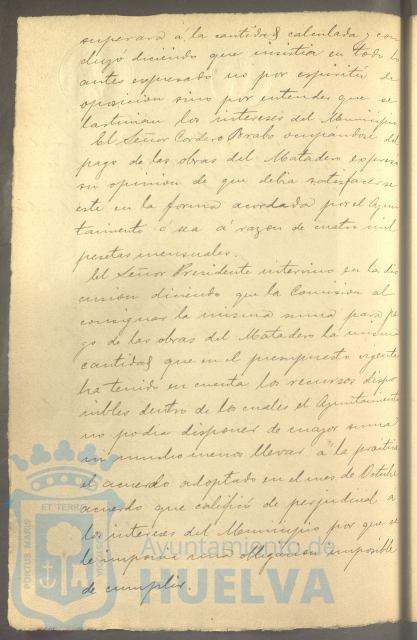 superara á la cantidad calculada y con
cluyo diciendo que insistia en todo lo
antes expresado no por espiritu de
oposicion sino por entender que se
lastiman los intereses del Municipio
El Señor Cordero Brabo ocupandose del
pago de las obras del Matadero expresa
su opinion de que debia satisfacerse
este en la forma acordada por el Ayun
tamiento ó sea á razon de cuatro mil
pesetas mensuales.
El Señor Presidente interino en la dis
cusion diciendo que la Comision al
consignar la misma suma para pa
go de las obras del Matadero la misma
cantidad que en el presupuesto vigente
ha tenido en cuenta los recursos dispo
nibles dentro de los cuales el Ayuntamiento
no podia disponer de mayor suma
ni mucho menos llevar á la practica
el acuerdo adoptado en el mes de Octubre
acuerdo que calificó de perjudicial a
los intereses del Municipio por que se
le imponia una obligacion imposible
de cumplir.
PORTUS MARIS
ET TERRAE
Ayuntamiento de
HUELVA